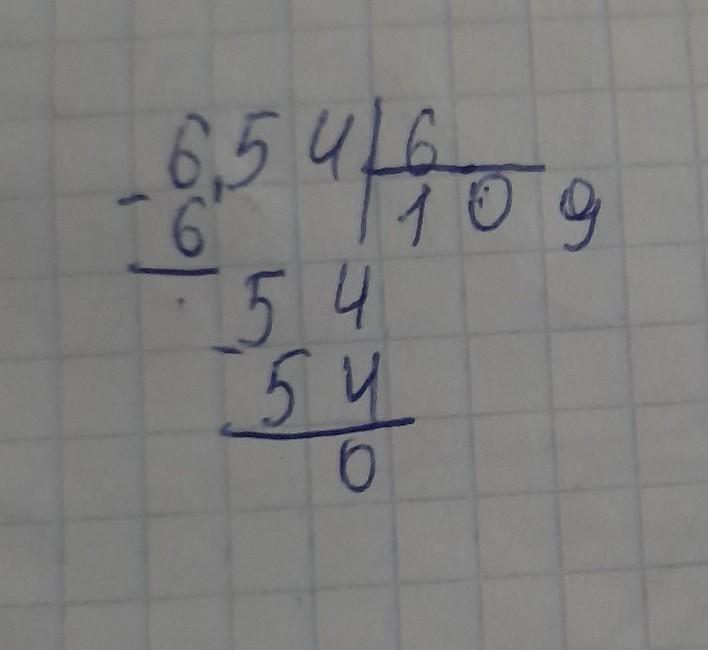 6,54 6
- 6 109
54
- 54
0